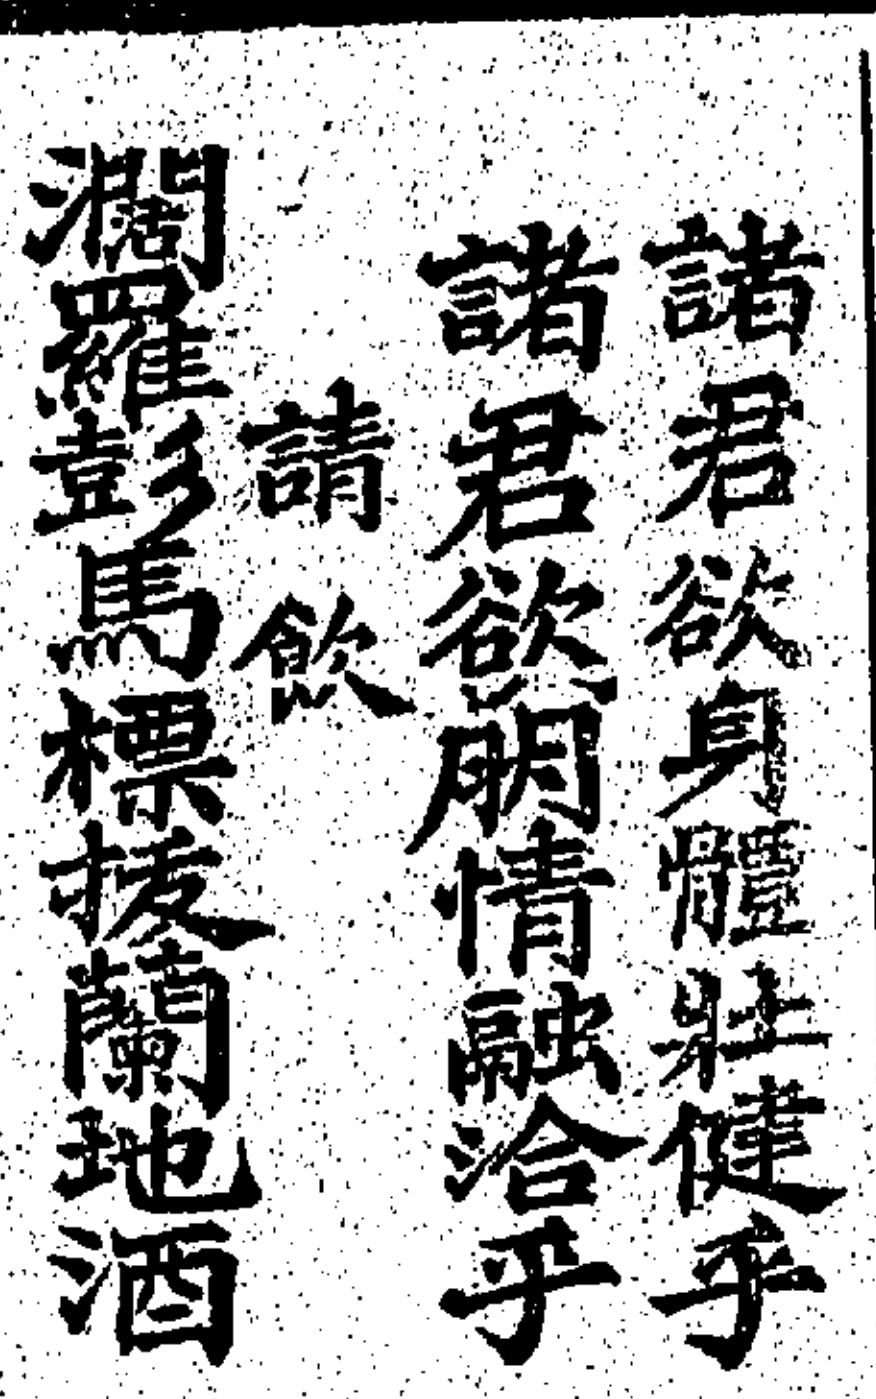 諸君欲身體壯健乎
諸君欲朋情融洽乎
請飲
濶羅彭馬標拔蘭地酒